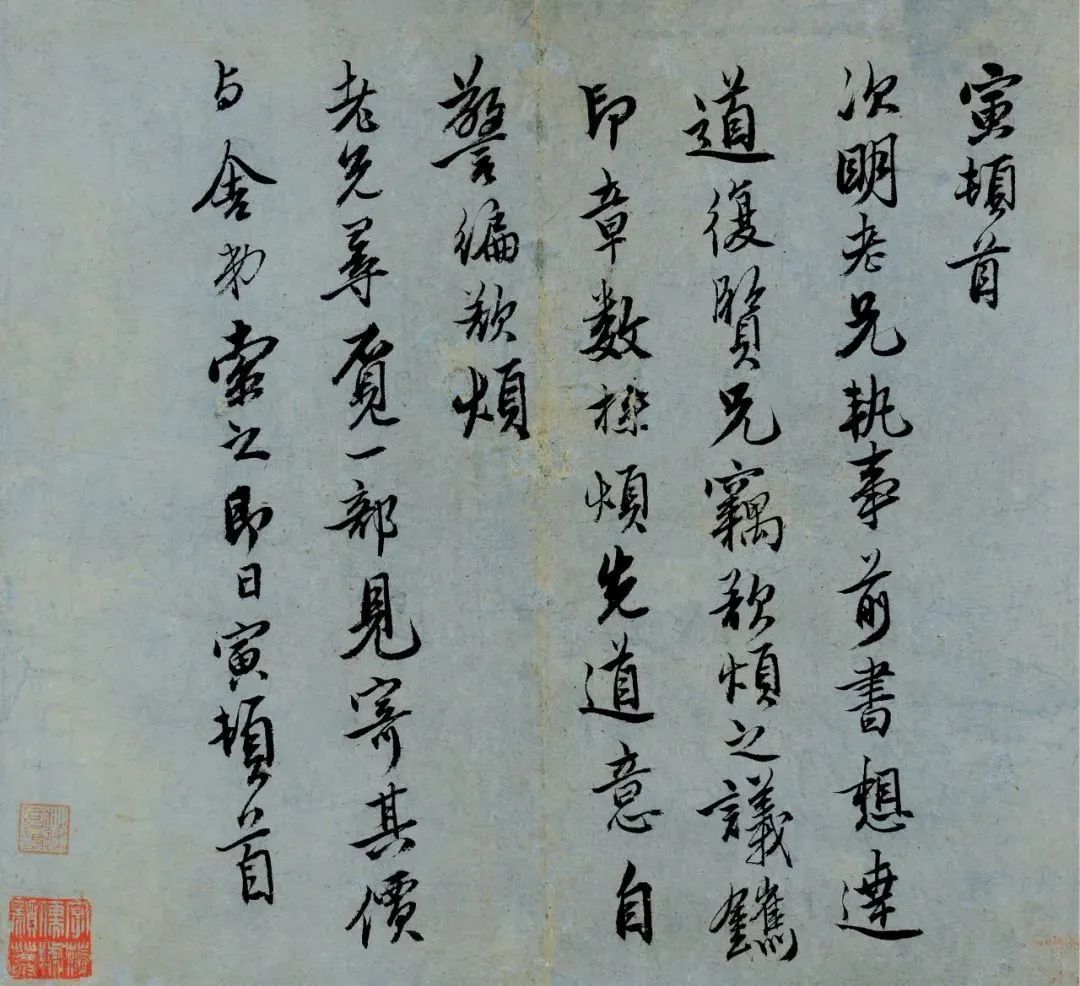 寅頓首
次明老兄執事前書想達
道復賢兄竊欲煩之議鐫
印章數煩先道意自
警編欲煩
老兄尋覓一部見寄其價
与舍弟索之即日寅頓首